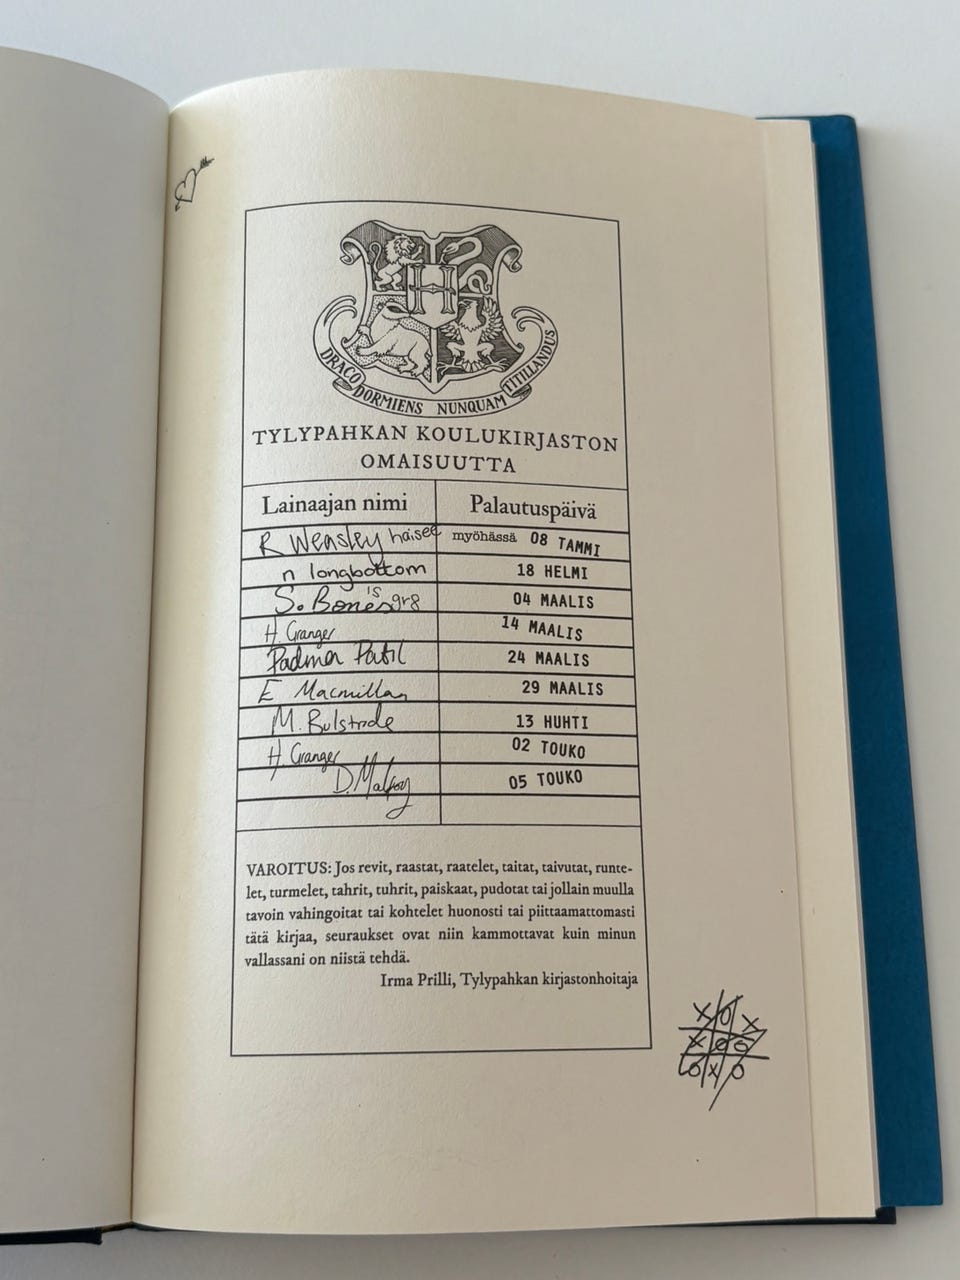 H
DRACO DORMIENS NUNQUAM TITILLANDUS
TYLYPAHKAN KOULUKIRJASTON
OMAISUUTTA
Lainaajan nimi Palautuspäivä
R Weasley haisee myöhässä 08 TAMMI
n longbottom 18 HELMI
S. Bones is gr8 04 MAALIS
H. Granger 14 MAALIS
Padma Patil 24 MAALIS
E Macmillan 29 MAALIS
M. Bulstrode 13 HUHTI
H. Granger 02 TOUKO
D. Malfoy 05 TOUKO
VAROITUS: Jos revit, raastat, raatelet, taitat, taivutat, runte-
let, turmelet, tahrit, tuhrit, paiskaat, pudotat tai jollain muulla
tavoin vahingoitat tai kohtelet huonosti tai piittaamattomasti
tätä kirjaa, seuraukset ovat niin kammottavat kuin minun
vallassani on niistä tehdä.
Irma Prilli, Tylypahkan kirjastonhoitaja
X O X
X O O
O X O